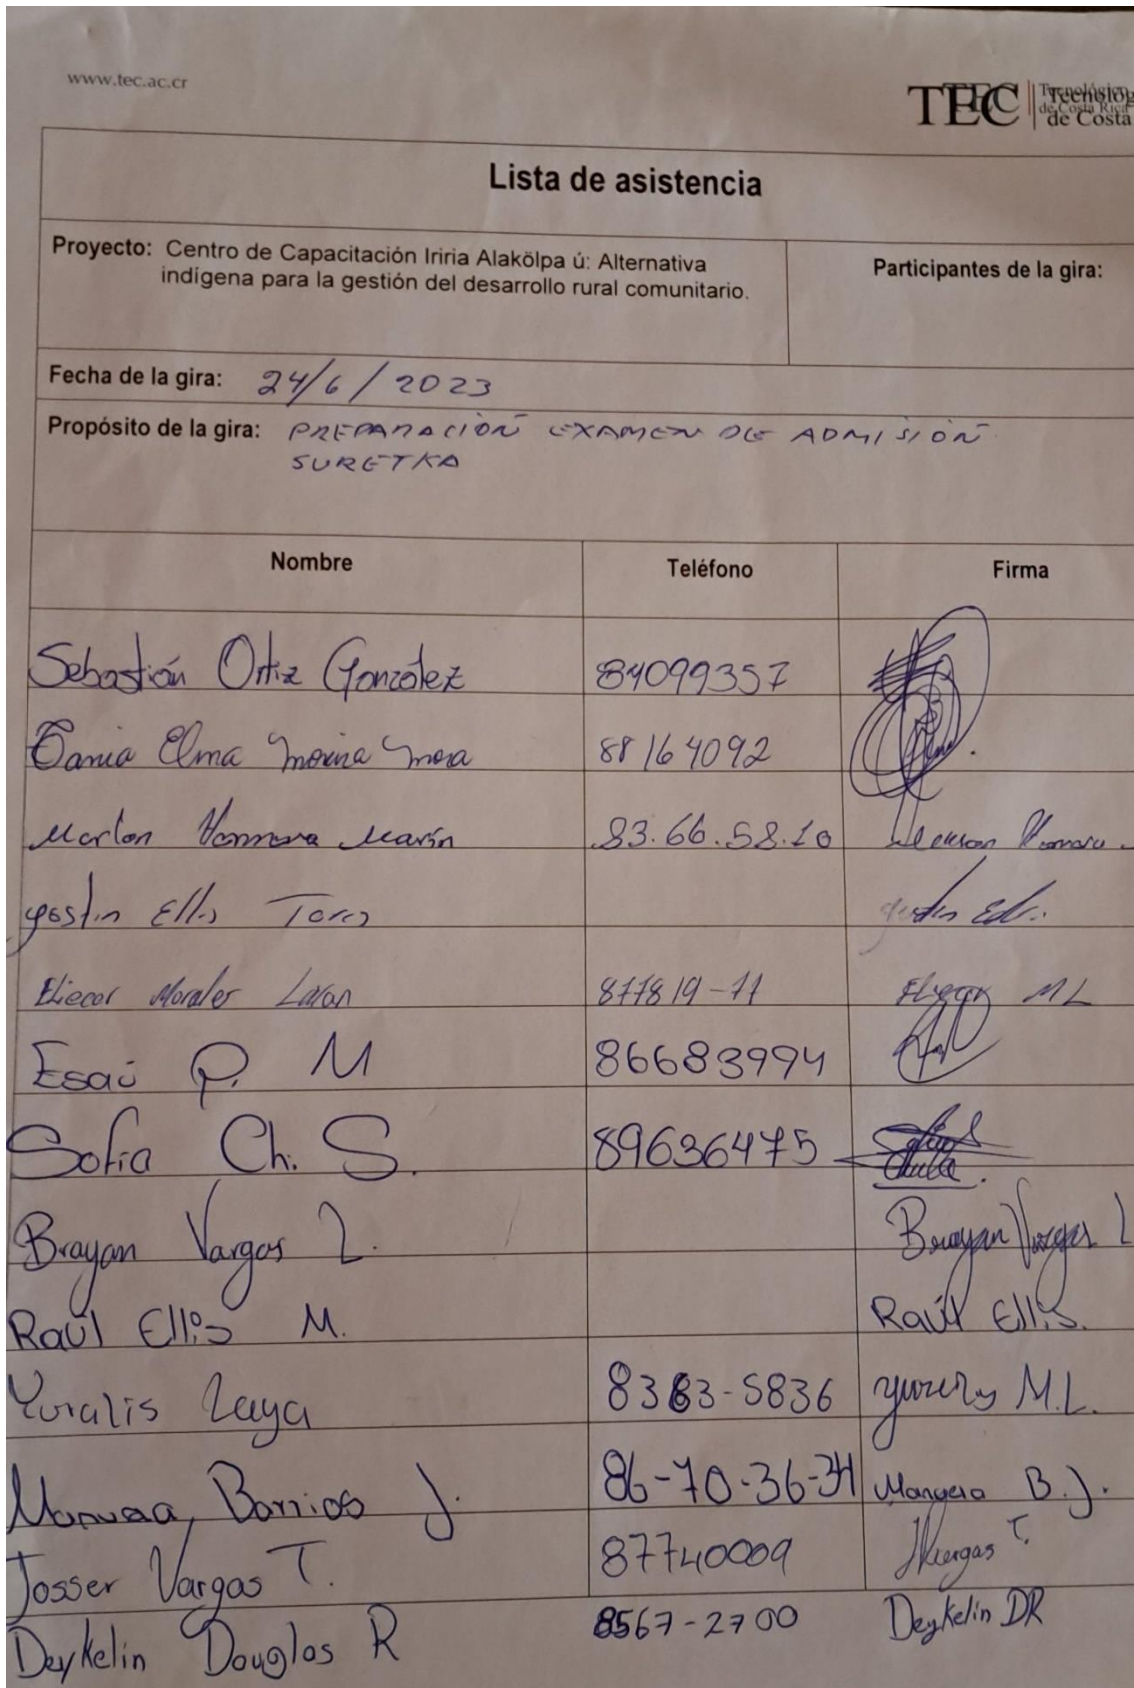 www.tec.ac.cr
TEC Tecnológico de Costa Rica
Lista de asistencia
Proyecto: Centro de Capacitación Iriria Alakölpa ú: Alternativa
indígena para la gestión del desarrollo rural comunitario.
Participantes de la gira:
Fecha de la gira: 24/6/2023
Propósito de la gira: PREPARACIÓN EXAMEN DE ADMISIÓN
SURETKA
Nombre Teléfono Firma
Sebastián Ortiz González 84099357
Tania Elma Morina Mora 88164092
Marlon Marín 83.66.58.10
yostin Ellis Torres
Eliecer Morales Layan 877819-11 Eliecer ML
Esaú P. M 86683994
Sofia Ch. S. 89636475
Brayan Vargas L. Brayan Vargas L
Raúl Ellis M. Raúl Ellis.
Yuralis Laya 8383-5836 M.L.
Barrios J. 86-70-36-34 Manuela B.J.
Josser Vargas T. 87740009 JVargas T.
Deykelin Douglas R 8567-2700 Deykelin DR